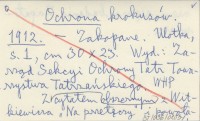 Ochrona krokusów.
1912. – Zakopane. Ulotka,
s. 1, cm 30 x 23. Wyd: Za-
rząd Sekcyi Ochrony Tatr Towa-
rzystwa Tatrzańskiego. WHP
Z cytatem St. Wit-
kiewicza. Na